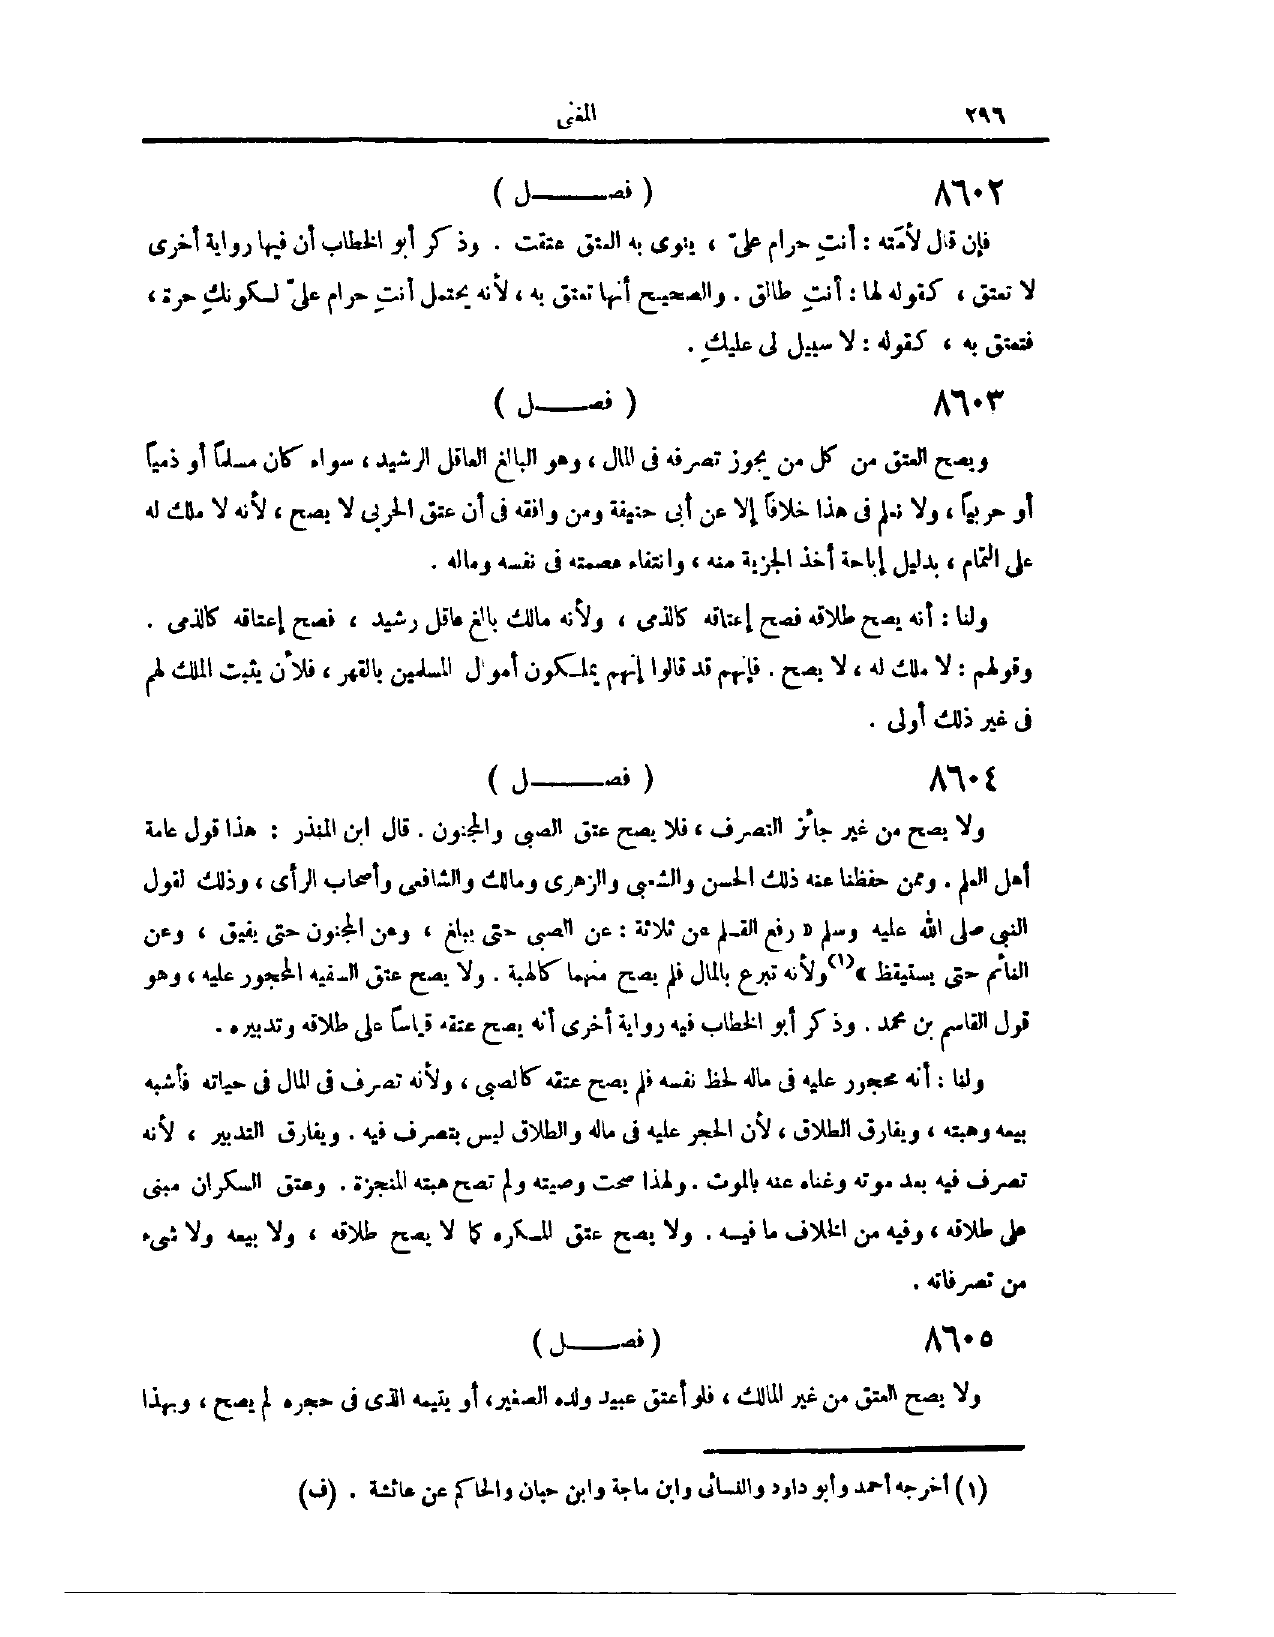 ٢٩٦
المغنى
٨٦٠٢
( فصـــــل )
فإن قال لأَمَته : أنتِ حرام علىّ ، ينوى به العتق عتقت . وذكر أبو الخطاب أن فيها رواية أخرى
لا تعتق ، كقوله لها : أنتِ طالق . والصحيح أنها تعتق به ، لأنه يحتمل أنتِ حرام علىّ لكونكِ حرة ،
فتعتق به ، كقوله : لا سبيل لى عليكِ .
٨٦٠٣
( فصـــــل )
ويصح العتق من كل من يجوز تصرفه فى المال ، وهو البالغ العاقل الرشيد ، سواء كان مسلماً أو ذمياً
أو حربياً ، ولا نعلم فى هذا خلافاً إلا عن أبى حنيفة ومن وافقه فى أن عتق الحربى لا يصح ، لأنه لا ملك له
على التمام ، بدليل إباحة أخذ الجزية منه ، وانتفاء عصمته فى نفسه وماله .
ولنا : أنه يصح طلاقه فصح إعتاقه كالذمى ، ولأنه مالك بالغ عاقل رشيد ، فصح إعتاقه كالذمى .
وقولهم : لا ملك له ، لا يصح . فإنهم قد قالوا إنهم يملكون أموال المسلمين بالقهر ، فلأن يثبت الملك لهم
فى غير ذلك أولى .
٨٦٠٤
( فصـــــل )
ولا يصح من غير جائز التصرف ، فلا يصح عتق الصبى والمجنون . قال ابن المنذر : هذا قول عامة
أهل العلم . وممن حفظنا عنه ذلك الحسن والشعبى والزهرى ومالك والشافعى وأصحاب الرأى ، وذلك لقول
النبى صلى الله عليه وسلم « رفع القلم عن ثلاثة : عن الصبى حتى يبلغ ، وعن المجنون حتى يفيق ، وعن
النائم حتى يستيقظ »(١) ولأنه تبرع بالمال فلم يصح منهما كالهبة . ولا يصح عتق السفيه المحجور عليه ، وهو
قول القاسم بن محمد . وذكر أبو الخطاب فيه رواية أخرى أنه يصح عتقه قياساً على طلاقه وتدبيره .
ولنا : أنه محجور عليه فى ماله لحظ نفسه فلم يصح عتقه كالصبى ، ولأنه تصرف فى المال فى حياته فأشبه
بيعه وهبته ، ويفارق الطلاق ، لأن الحجر عليه فى ماله والطلاق ليس بتصرف فيه . ويفارق التدبير ، لأنه
تصرف فيه بعد موته وغناه عنه بالموت . ولهذا صحت وصيته ولم تصح هبته المنجزة . وعتق السكران مبنى
على طلاقه ، وفيه من الخلاف ما فيه . ولا يصح عتق المكره كما لا يصح طلاقه ، ولا بيعه ولا شىء
من تصرفاته .
٨٦٠٥
( فصـــــل )
ولا يصح العتق من غير المالك ، فلو أعتق عبيد ولده الصغير، أو يتيمه الذى فى حجره لم يصح ، وبهذا
(١) أخرجه أحمد وأبو داود والنسائى وابن ماجة وابن حبان والحاكم عن عائشة . (ف)